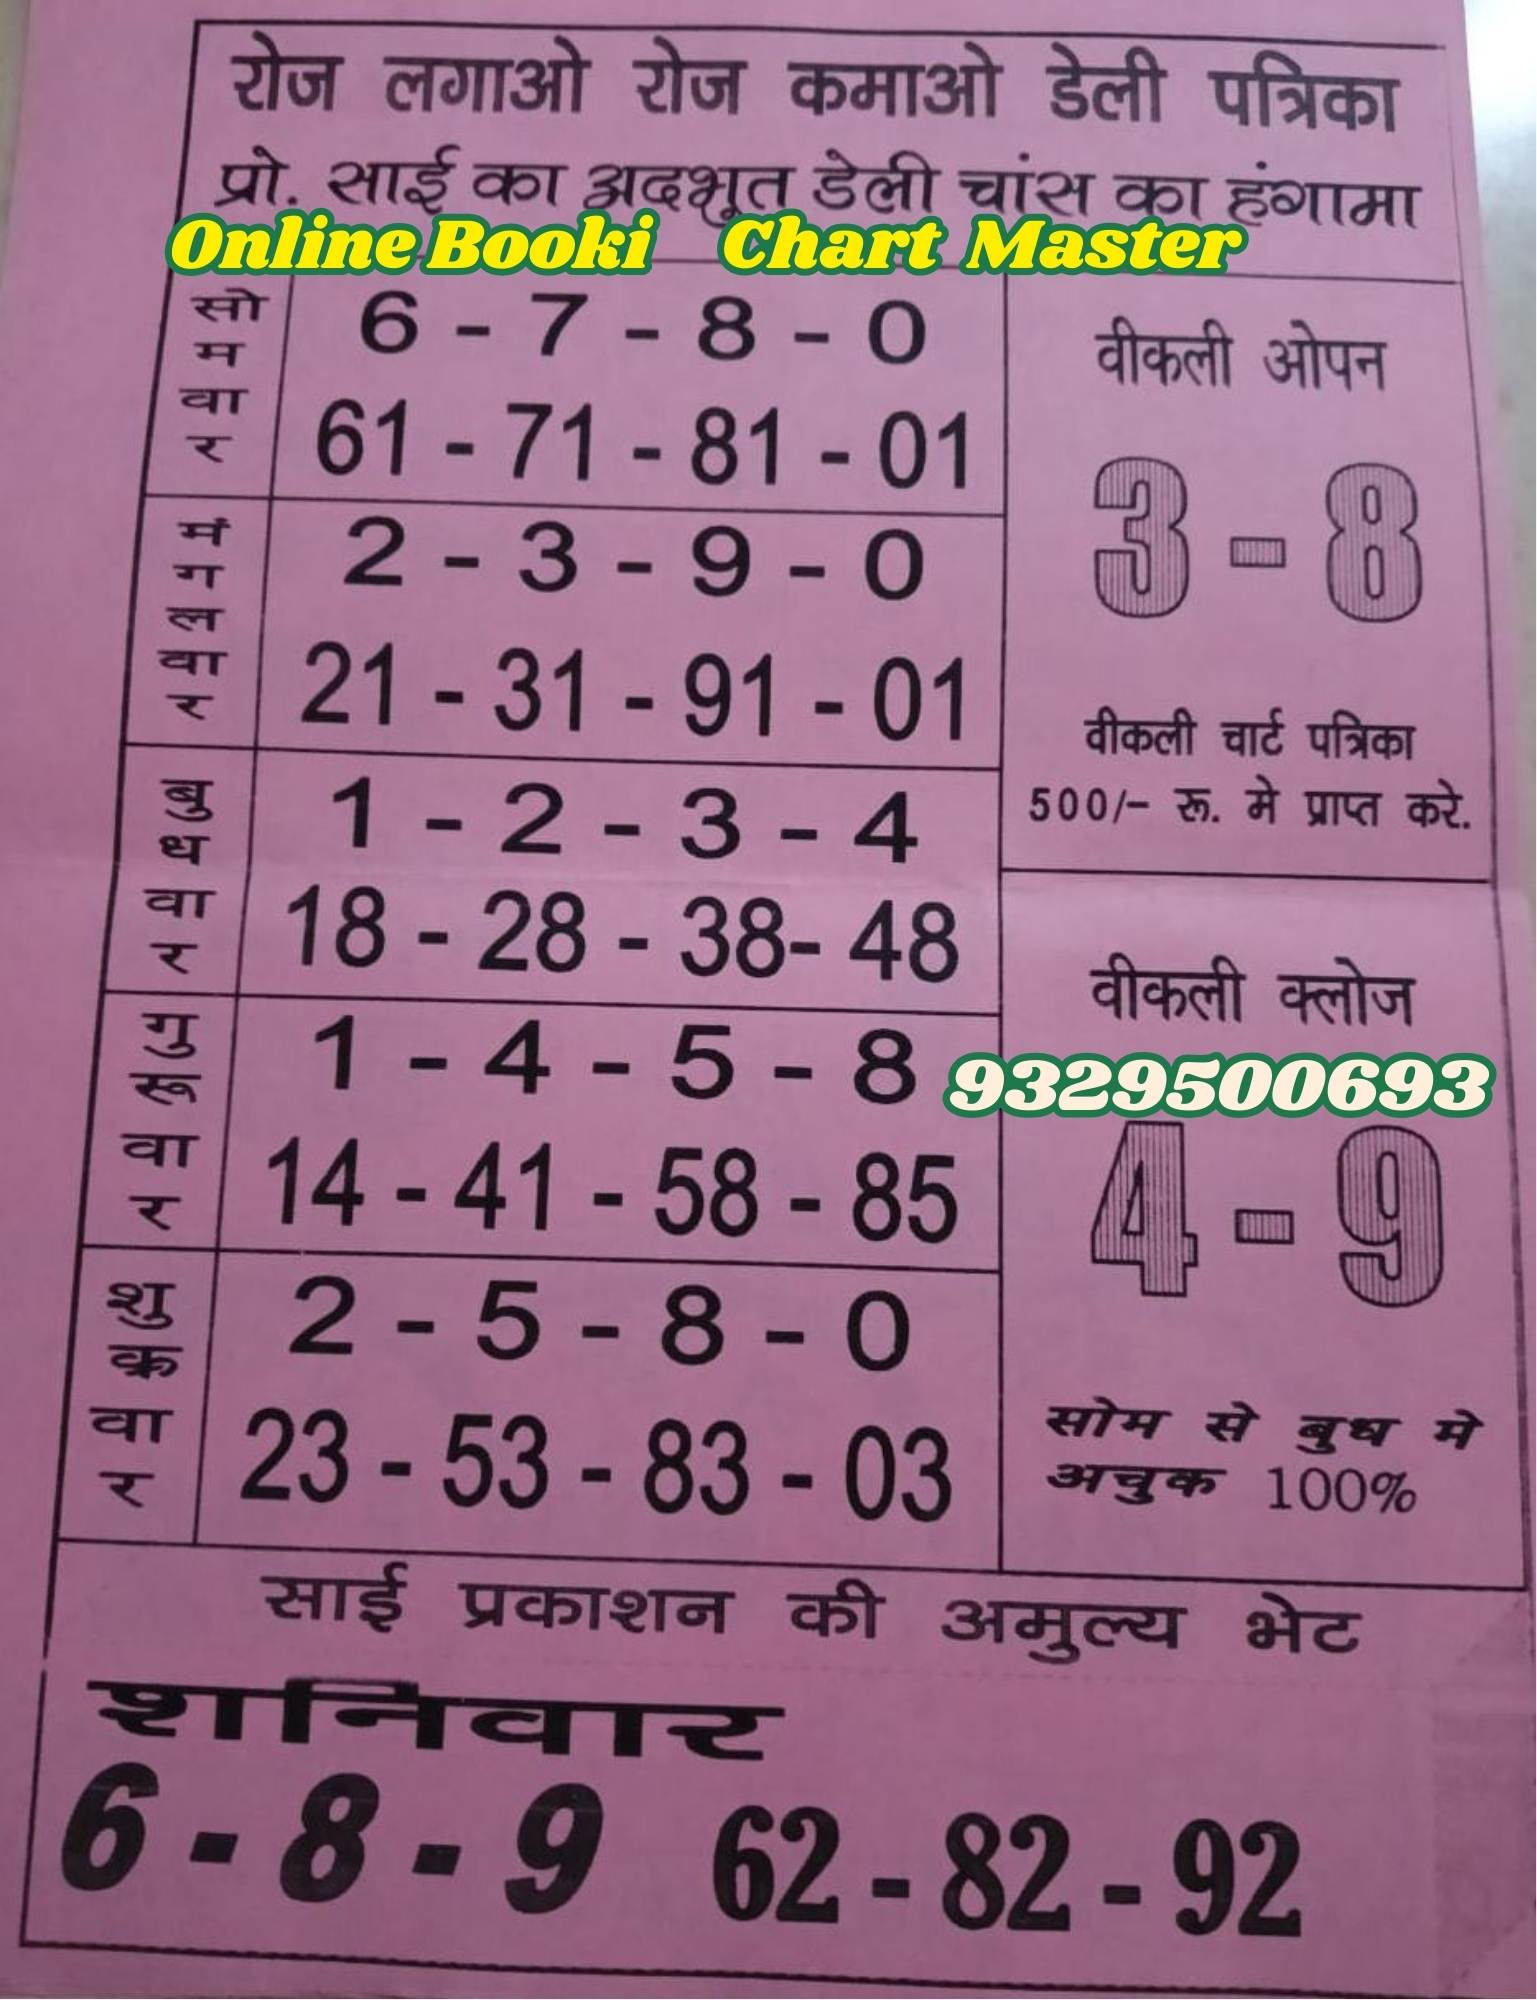 रोज लगाओ रोज कमाओ डेली पत्रिका
प्रो. साई का अदभूत डेली चांस का हंगामा
Online Booki Chart Master
सोमवार
6 - 7 - 8 - 0
61 - 71 - 81 - 01
मंगलवार
2 - 3 - 9 - 0
21 - 31 - 91 - 01
बुधवार
1 - 2 - 3 - 4
18 - 28 - 38- 48
गुरूवार
1 - 4 - 5 - 8
14 - 41 - 58 - 85
शुक्रवार
2 - 5 - 8 - 0
23 - 53 - 83 - 03
वीकली ओपन
3 - 8
वीकली चार्ट पत्रिका
500/- रू. मे प्राप्त करे.
वीकली क्लोज
9329500693
4 - 9
सोम से बुध मे
अचुक 100%
साई प्रकाशन की अमुल्य भेट
शनिवार
6 - 8 - 9 62 - 82 - 92